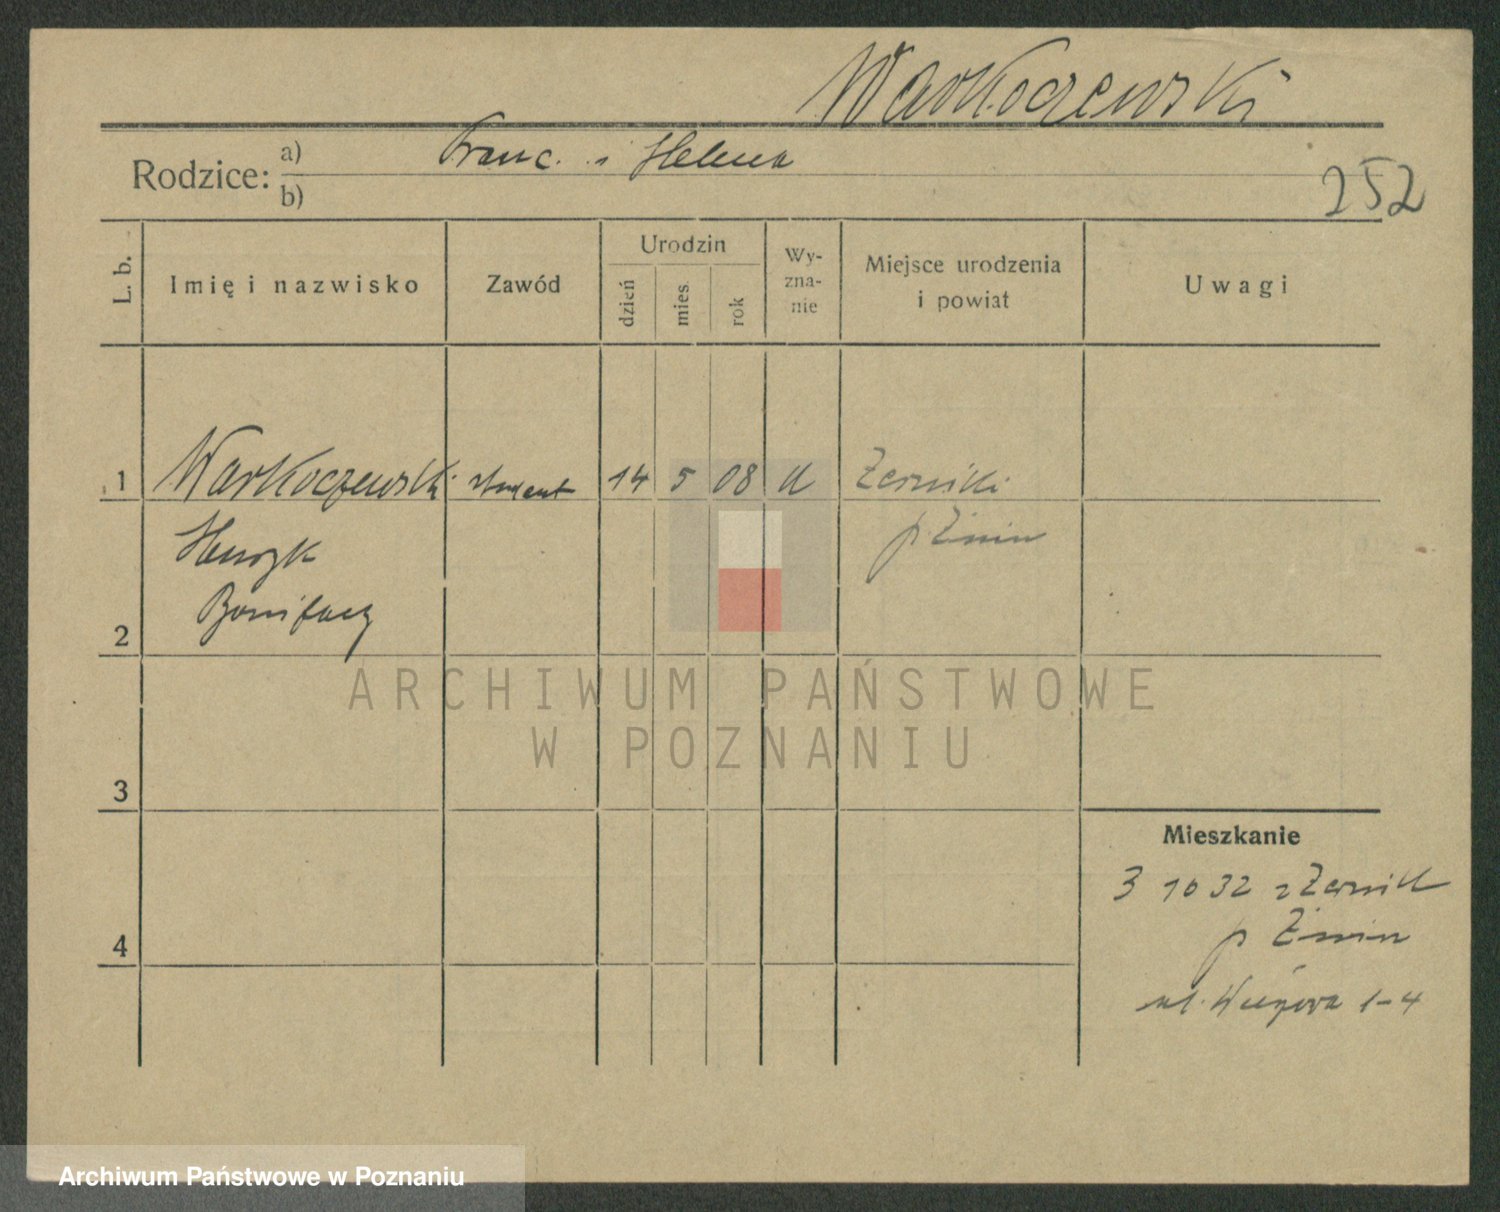 Warkoczewski
Rodzice: a) Franc. i Helena
b)
252
L. b.
Imię i nazwisko
Zawód
Urodzin
dzień
mies.
rok
Wy-
zna-
nie
Miejsce urodzenia
i powiat
Uwagi
1 Warkoczewski student 14 5 08 k Żerniki
Henryk p. Żnin
Bonifacy
2
3
4
Mieszkanie
3 10 32 z Żernik
p Żnin
ul. 1-4
ARCHIWUM PAŃSTWOWE
W POZNANIU
Archiwum Państwowe w Poznaniu